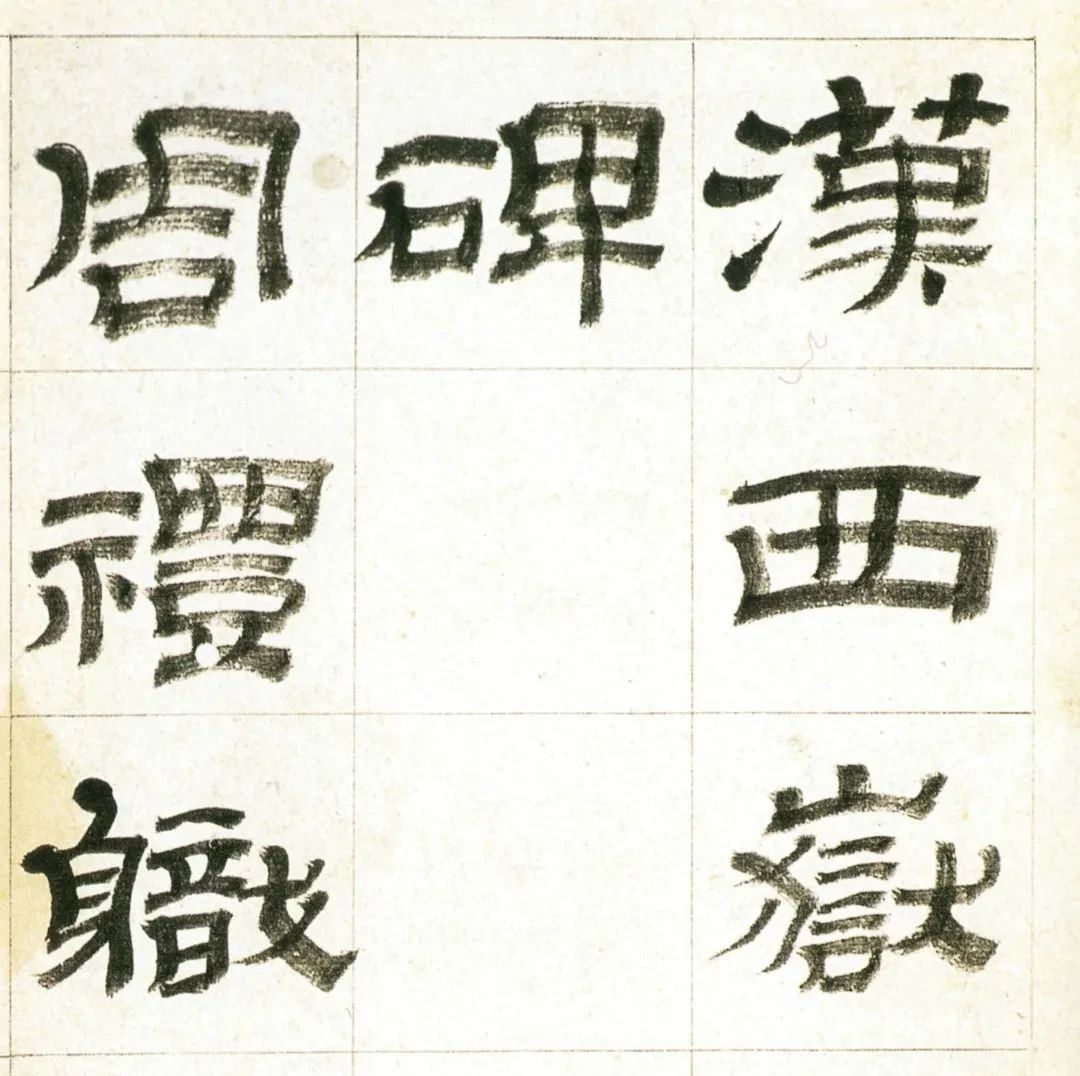 漢西嶽
碑
周禮軄